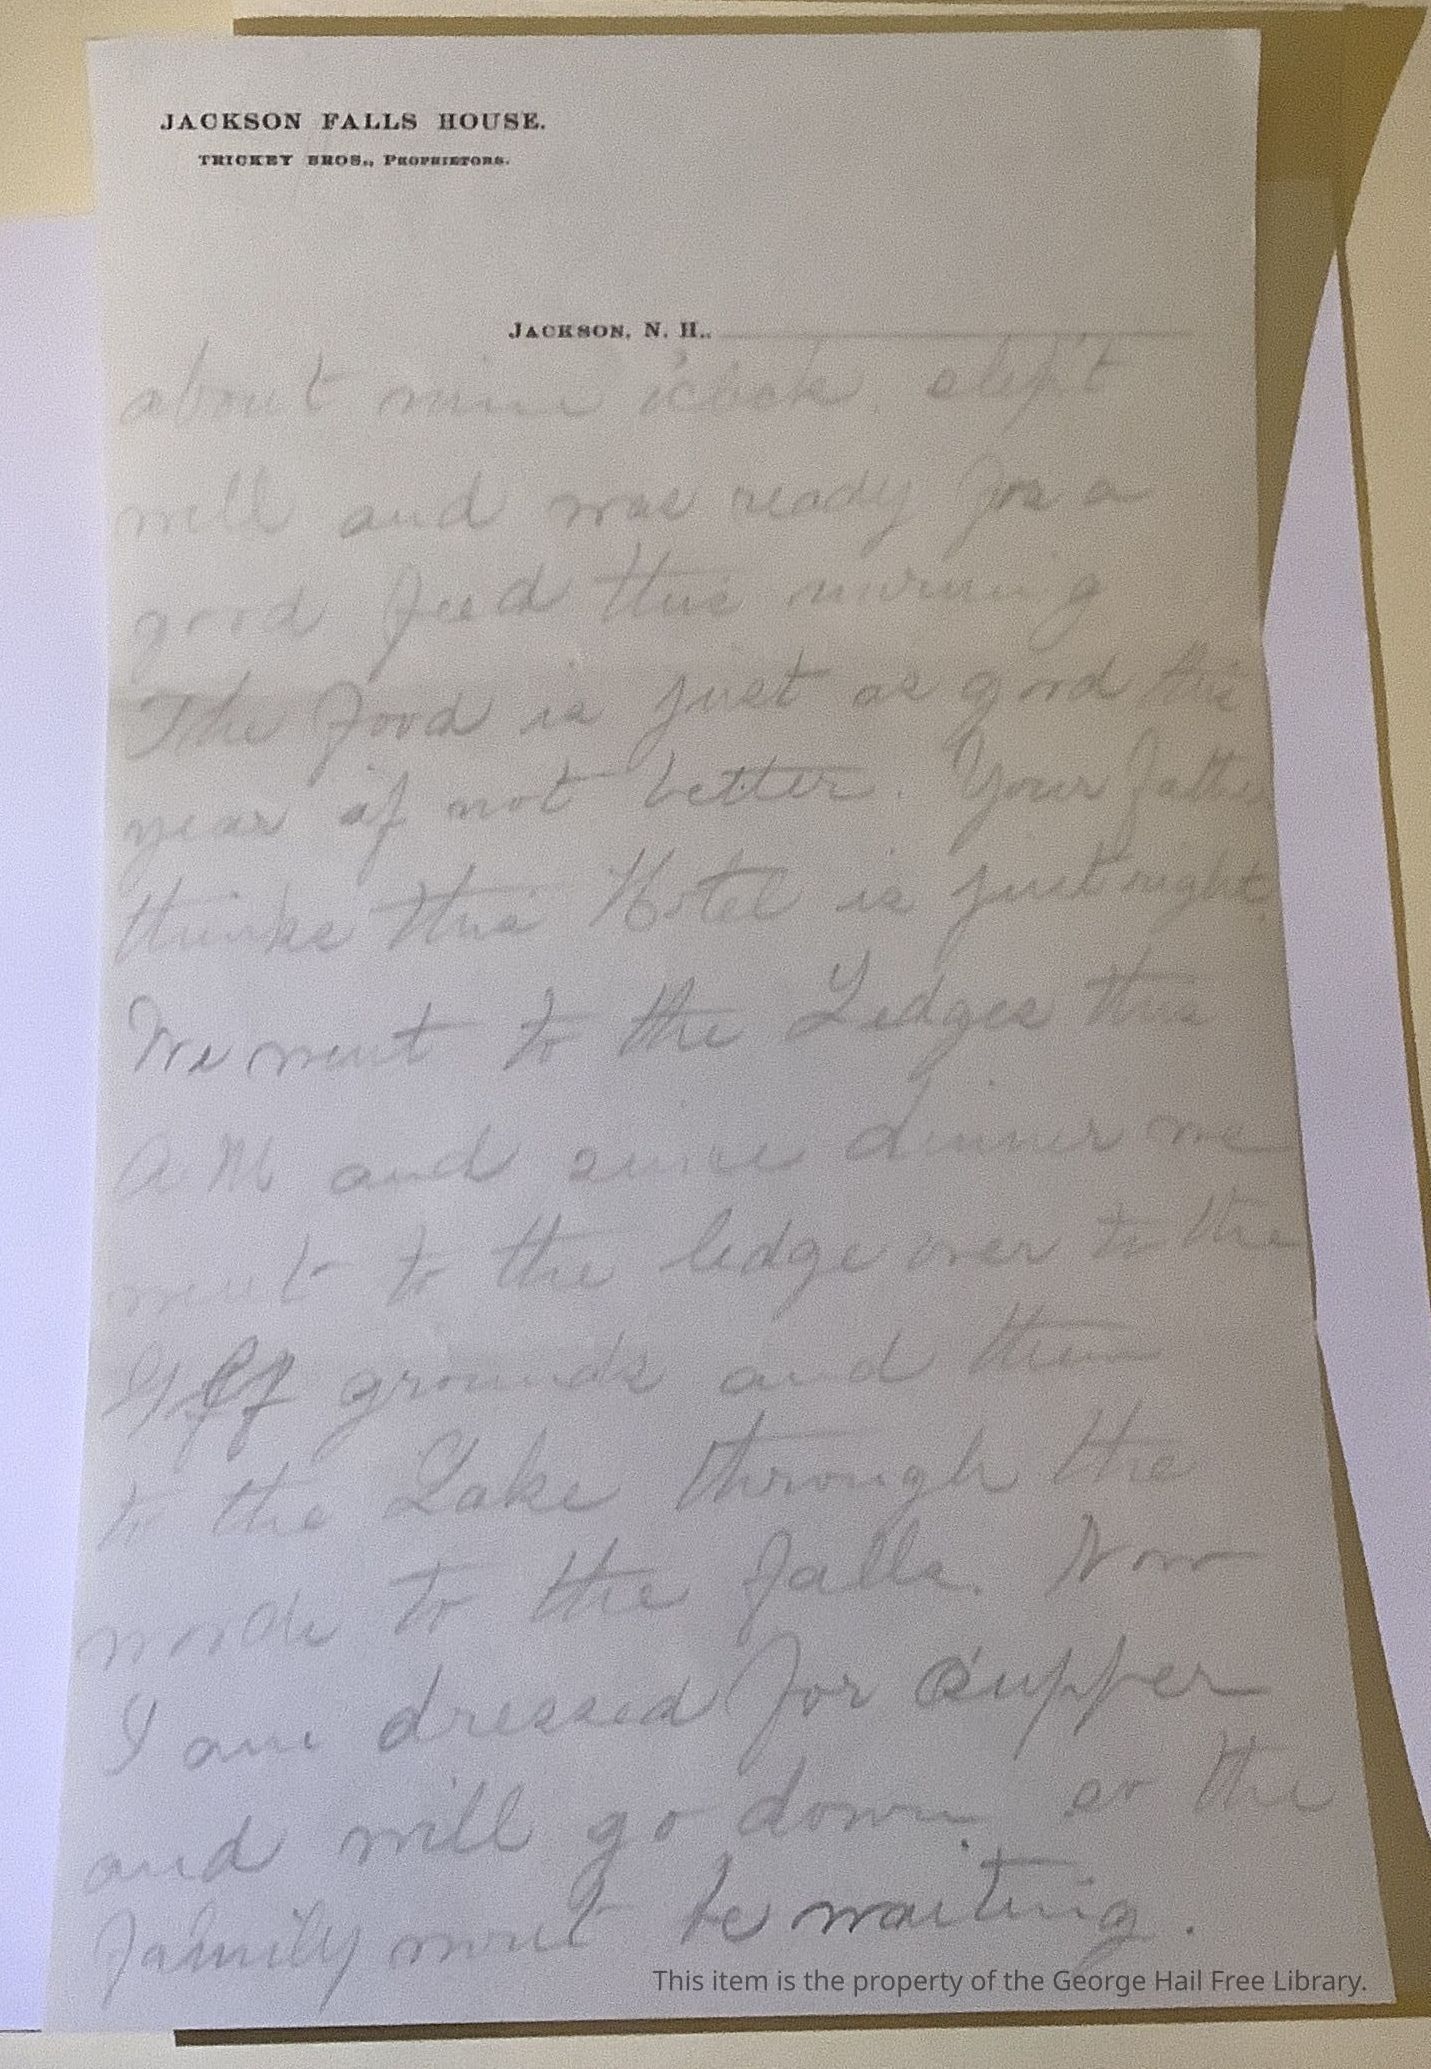 JACKSON FALLS HOUSE.
TRICKEY BROS., PROPRIETORS.
JACKSON, N. H.,
about nine o'clock. slept
well and was ready for a
good feed this morning
The food is just as good this
year if not better. Your father
thinks this Hotel is just right.
We went to the Ledges this
A.M and since dinner we
went to the ledge over to the
Golf grounds and then
to the Lake through the
woods to the falls. Now
I am dressed for supper
and will go down so the
family wont be waiting.
This item is the property of the George Hail Free Library.